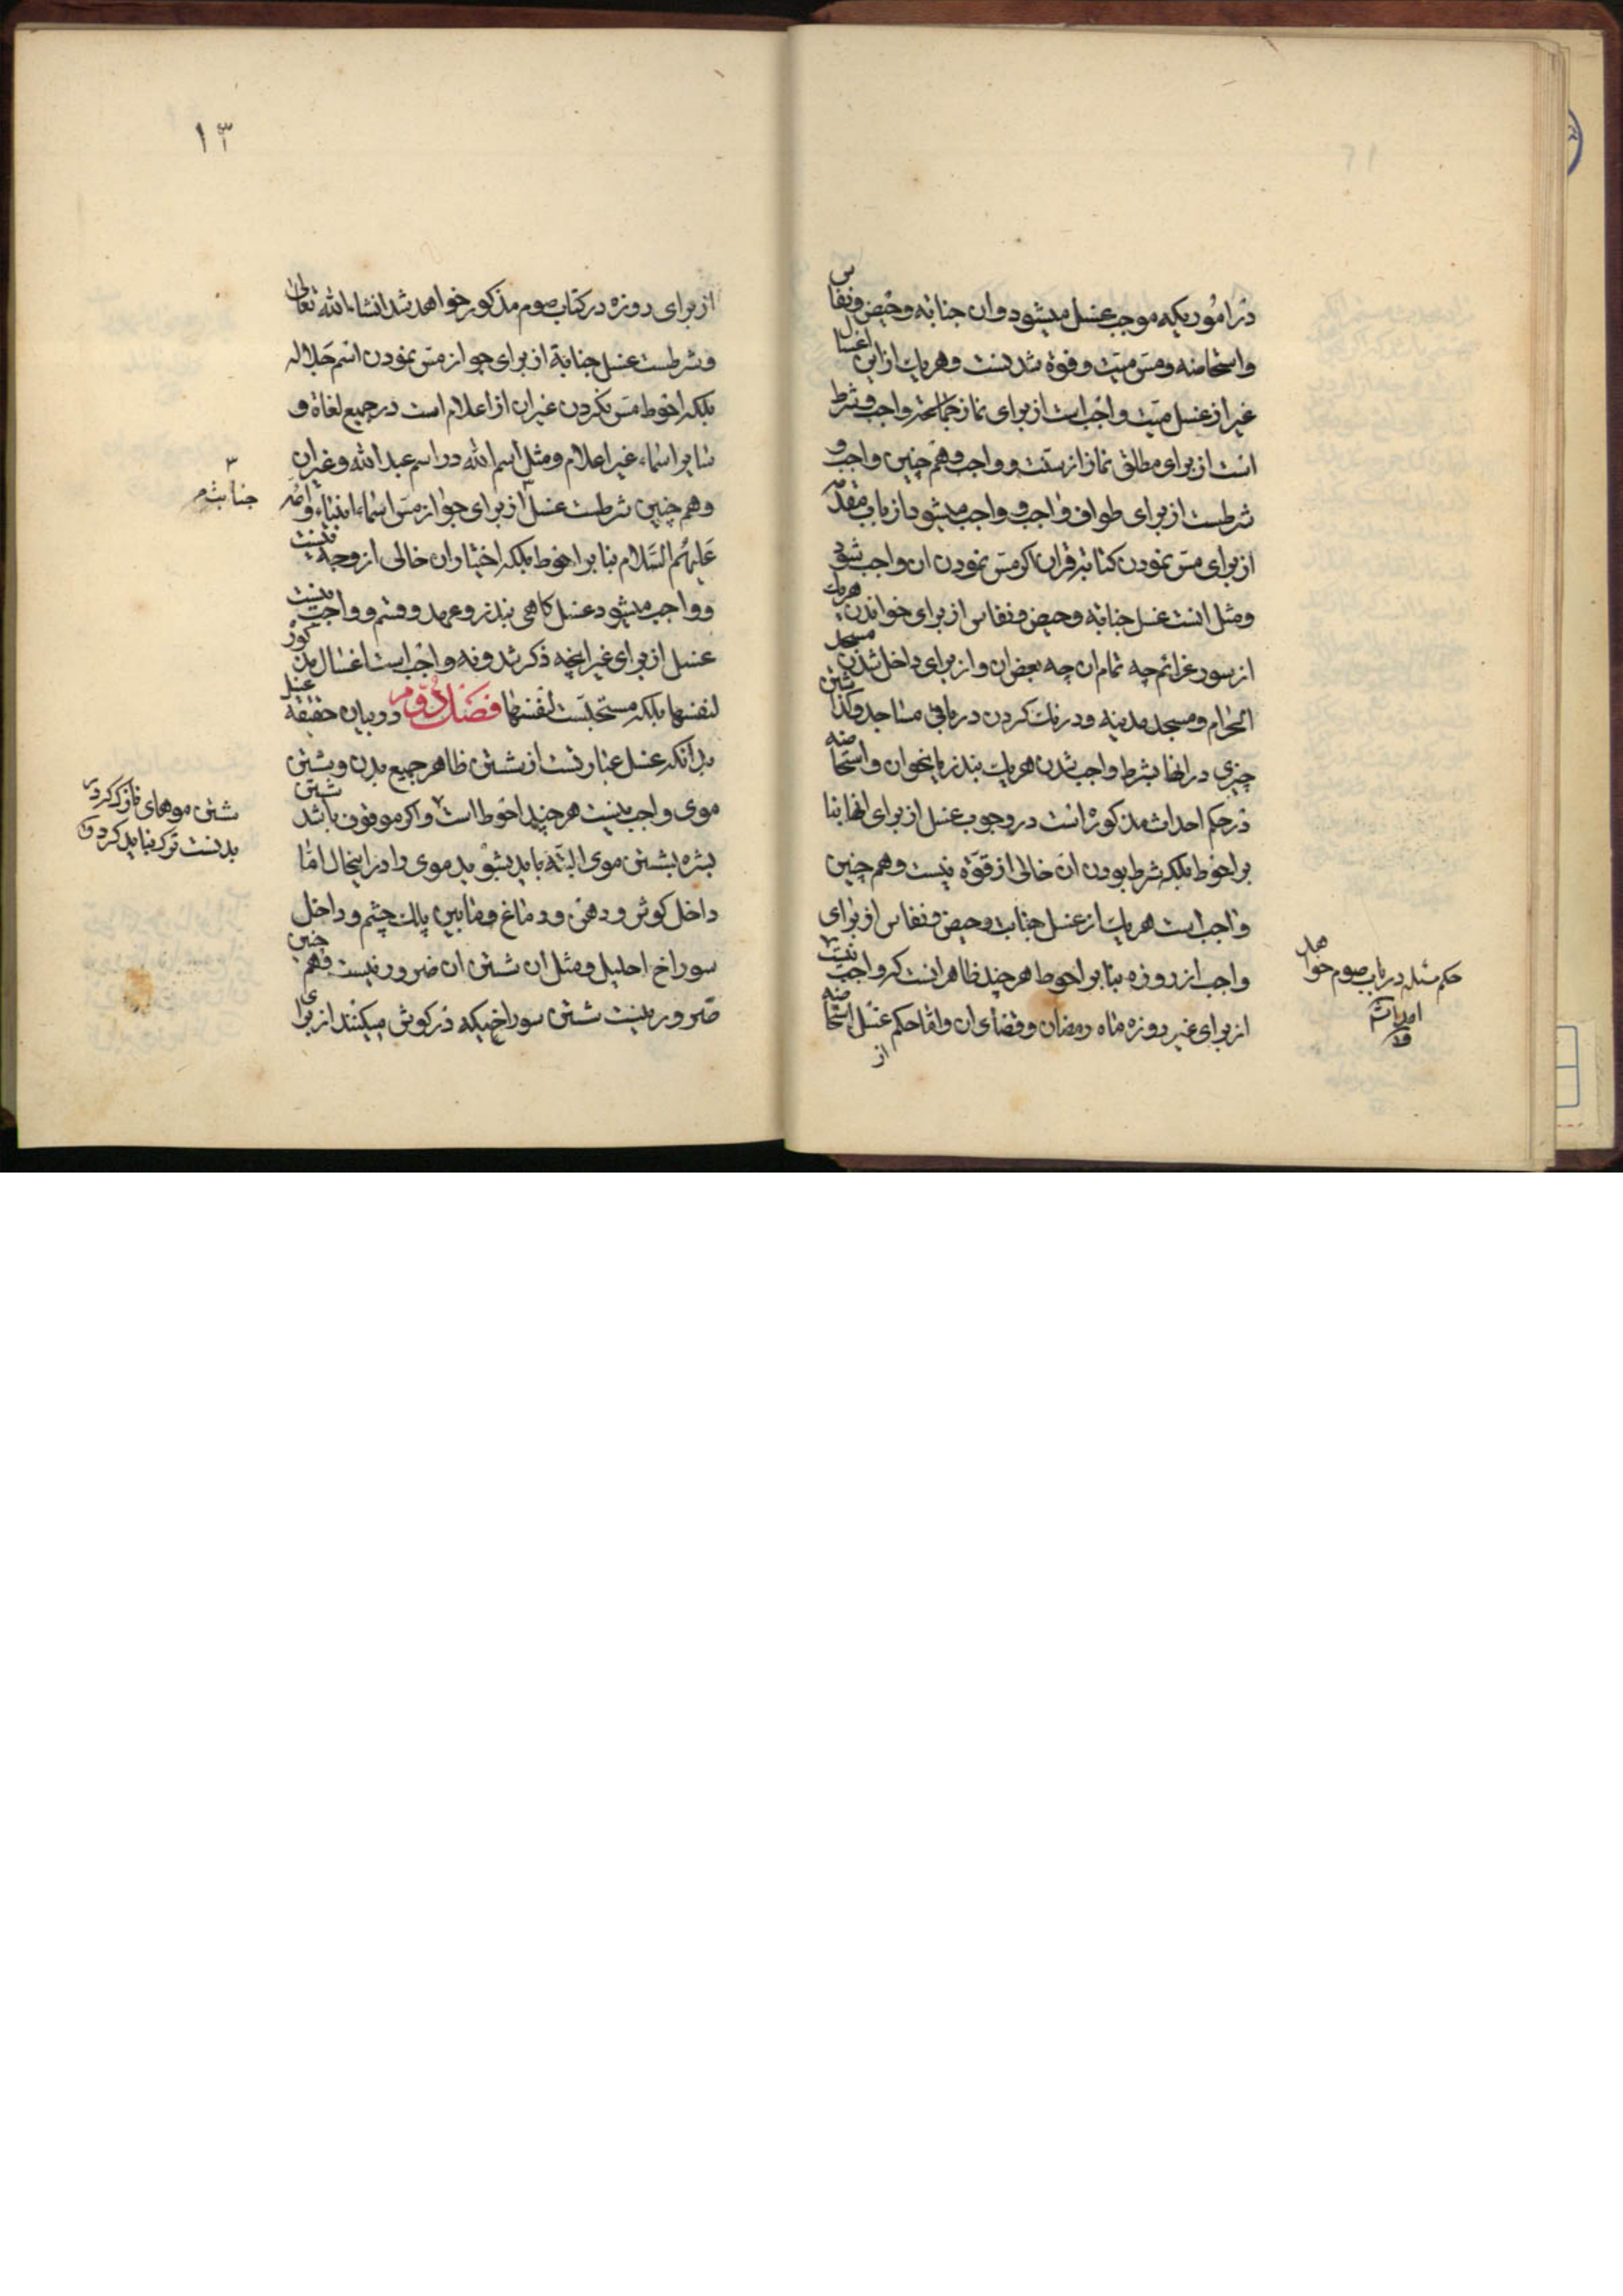 در اموریکه موجب غسل میشود و ان جنابه و حیض و نفاس
و استحاضه و مس میت و فوة شدنست و هر یک از این اغسال
غیر از غسل میت واجب است از برای نماز واجب و شرط
است از برای مطلق نماز از سنت و واجب و هم چنین واجب و
شرطست از برای طواف واجب و واجب میشود از باب مقدمه
از برای مس نمودن کتابة قران اکر مس نمودن ان واجب شود
و مثل انست غسل جنابه و حیض و نفاس از برای خواندن هر یک
از سور عزائم چه تمام ان چه بعض ان و از برای داخل شدن مسجد
الحرام و مسجد مدینه و درنک کردن در باقی مساجد و کذاشتن
چیزی در انها بشرط واجب شدن هر یک بنذر یا نحو ان و استحاضه
در حکم احداث مذکوره است در وجوب غسل از برای انها بنا
بر احوط بلکه شرط بودن ان خالی از قوة نیست و هم چنین
واجب است هر یک از غسل جنابت و حیض و نفاس از برای
واجب از روزه بنا بر احوط هر چند ظاهر انست که واجب نیست
از برای غیر روزه ماه رمضان و قضای ان و اما حکم غسل استحاضه
از
حکم مسئله در باب صوم خواهد
امد
۱۳
از برای روزه در کتاب صوم مذکور خواهد شد انشاء الله تعالی
و شرطست غسل جنابة از برای جواز مس نمودن اسم جلاله
بلکه احوط مس نکردن غیر ان از اعلام است در جمیع لغاة و
سایر اسماء غیر اعلام و مثل اسم الله در اسم عبد الله و غیر ان
و هم چنین شرطست غسل از برای جواز مس اسماء انبیاء و ائمه
علیهم السلام بنا بر احوط بلکه اختیار ان خالی از وجه نیست
و واجب میشود غسل کاهی بنذر و عهد و قسم و واجب نیست
غسل از برای غیر انچه ذکر شد و نه واجب است اغسال مذکوره
لنفسها بلکه مستحبست لنفسها فصل دوم در بیان حقیقة غسل
بدانکه غسل عبارتست از شستن ظاهر جمیع بدن و شستن
موی واجب نیست هر چند احوط است و اکر موقوف باشد شستن
بشره بشستن موی البته باید بشوید موی را در اینحال اما
داخل کوش و دهن و دماغ و مابین پلک چشم و داخل
سوراخ احلیل و مثل ان شستن ان ضرور نیست و هم چنین
ضرور نیست شستن سوراخیکه در کوش میکنند از برای
جنابت م
شستن موهای نازک که در
بدنست ترک نباید کرد